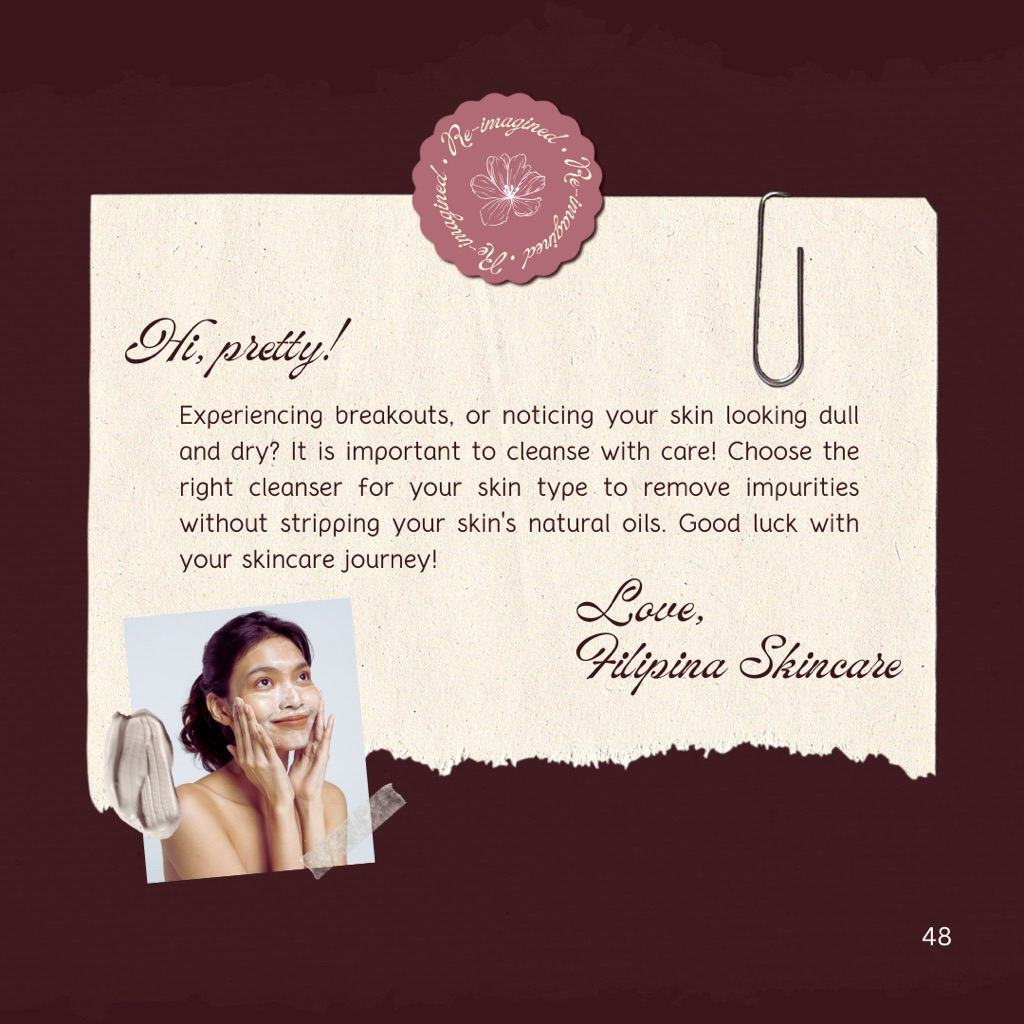 Re-imagined • Re-imagined • Re-imagined • Re-imagined •
Hi, pretty!
Experiencing breakouts, or noticing your skin looking dull
and dry? It is important to cleanse with care! Choose the
right cleanser for your skin type to remove impurities
without stripping your skin's natural oils. Good luck with
your skincare journey!
Love,
Filipina Skincare
48